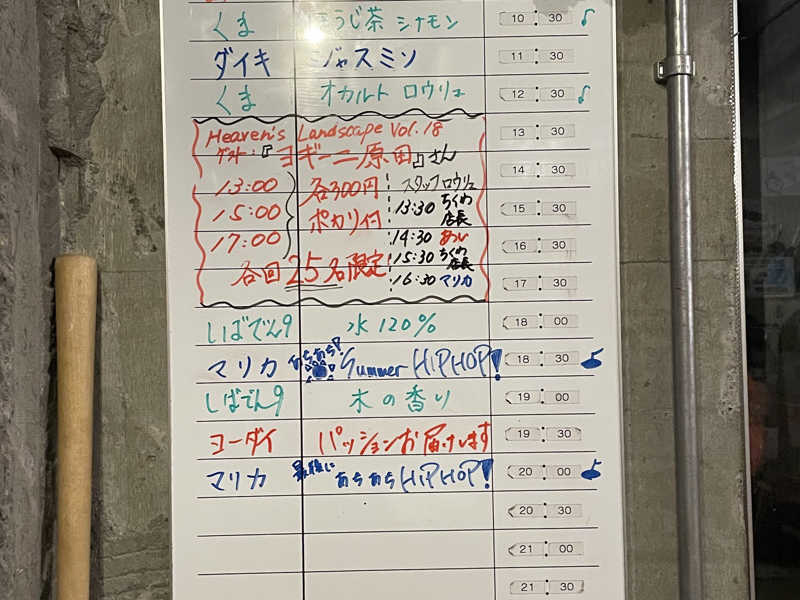 くま ほうじ茶 シナモン 10:30
ダイキ ジャスミン 11:30
くま オカルト ロウリュ 12:30
Heaven's Landscape Vol.18 13:30
ゲスト:『ヨギーニ原田』さん
14:30
13:00 各300円 スタッフロウリュ
15:00 ポカリ付 13:30 ちくわ店長 15:30
17:00 14:30 あい 16:30
各回25名限定 15:30 ちくわ店長
16:30 マリカ 17:30
しばでん9 水120% 18:00
マリカ あちあち!? Summer HIPHOP! 18:30
しばでん9 木の香り 19:00
ヨーダイ パッションお届けします 19:30
マリカ 最後に あちあち HIPHOP! 20:00
20:30
21:00
21:30